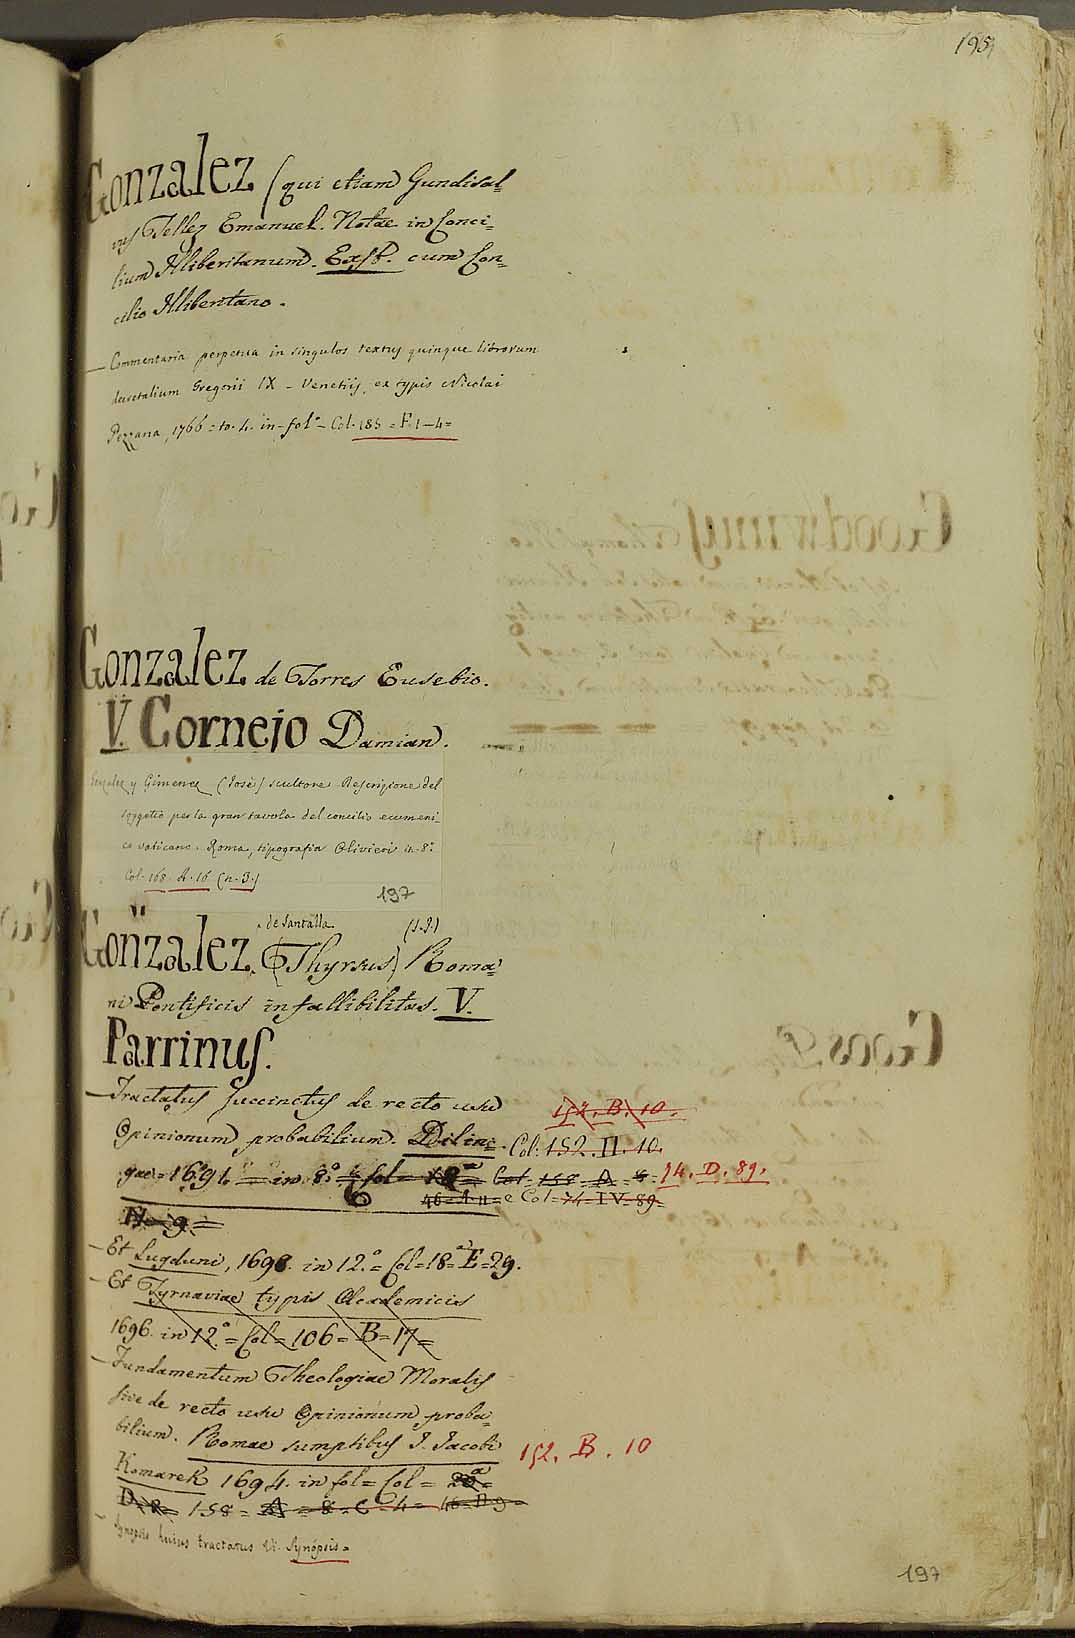 195
Gonzalez (qui etiam Gundisal=
vus Tellez Emanuel. Notae in Conci=
lium Illiberitanum. Exst. cum Con=
cilio Illiberitano.
— Commentaria perpetua in singulos textus quinque librorum
decretalium Gregorii IX - Venetiis, ex typis Nicolai
Pezzana, 1766 = to. 4. in-fol° - Col. 185 = F. 1-4=
Gonzalez de Torres Eusebio.
V. Cornejo Damian.
Gonzalez y Gimenez (José) scultore Descrizione del
soggetto per la gran tavola del concilio ecumeni-
co vaticano. Roma, tipografia Olivieri in-8°
Col. 168. A. 16 (n. 3.)
197
de Santalla (S.J.)
Gonzalez (Thyrsus) Roma=
ni Pontificis infallibilitas. V.
Parrinus.
— Tractatus succinctus de recto usu
Opinionum probabilium. Dilin=
152. B. 10.
Col: 152. II. 10.
gae = 1691. in 8.° Col = 158 = A = 8 = 14. D. 89.
46 = A. 11 = e Col = 74 = IV = 89 =
N. 9. =
— Et Lugduni, 1698. in 12.° = Col = 18 = E = 29.
— Et Tyrnaviae typis Academicis
1696. in 12.° = Col = 106 = B = 17 =
— Fundamentum Theologiae Moralis
sive de recto usu Opinionum proba=
bilium. Romae sumptibus J. Jacobi
152. B. 10
Komarek 1694. in fol = Col = 20 =
D. 2 = 158 = A = 8 = C = 4 =
— Synopsis huius tractatus V. Synopsis =
197